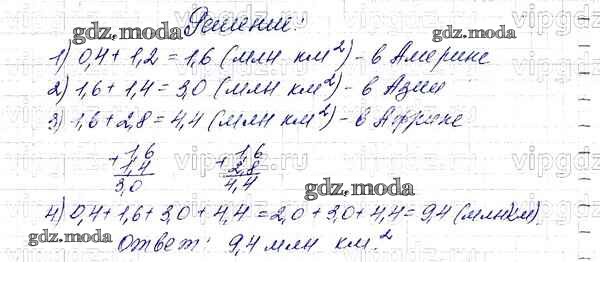 Решение:
1) 0,4 + 1,2 = 1,6 (млн км²) - в Америке
2) 1,6 + 1,4 = 3,0 (млн км²) - в Азии
3) 1,6 + 2,8 = 4,4 (млн км²) - в Африке
+ 1,6 + 1,6
1,4 2,8
3,0 4,4
gdz.moda
4) 0,4 + 1,6 + 3,0 + 4,4 = 2,0 + 3,0 + 4,4 = 9,4 (млн км²).
Ответ: 9,4 млн км.²
gdz.moda
gdz.moda
gdz.moda